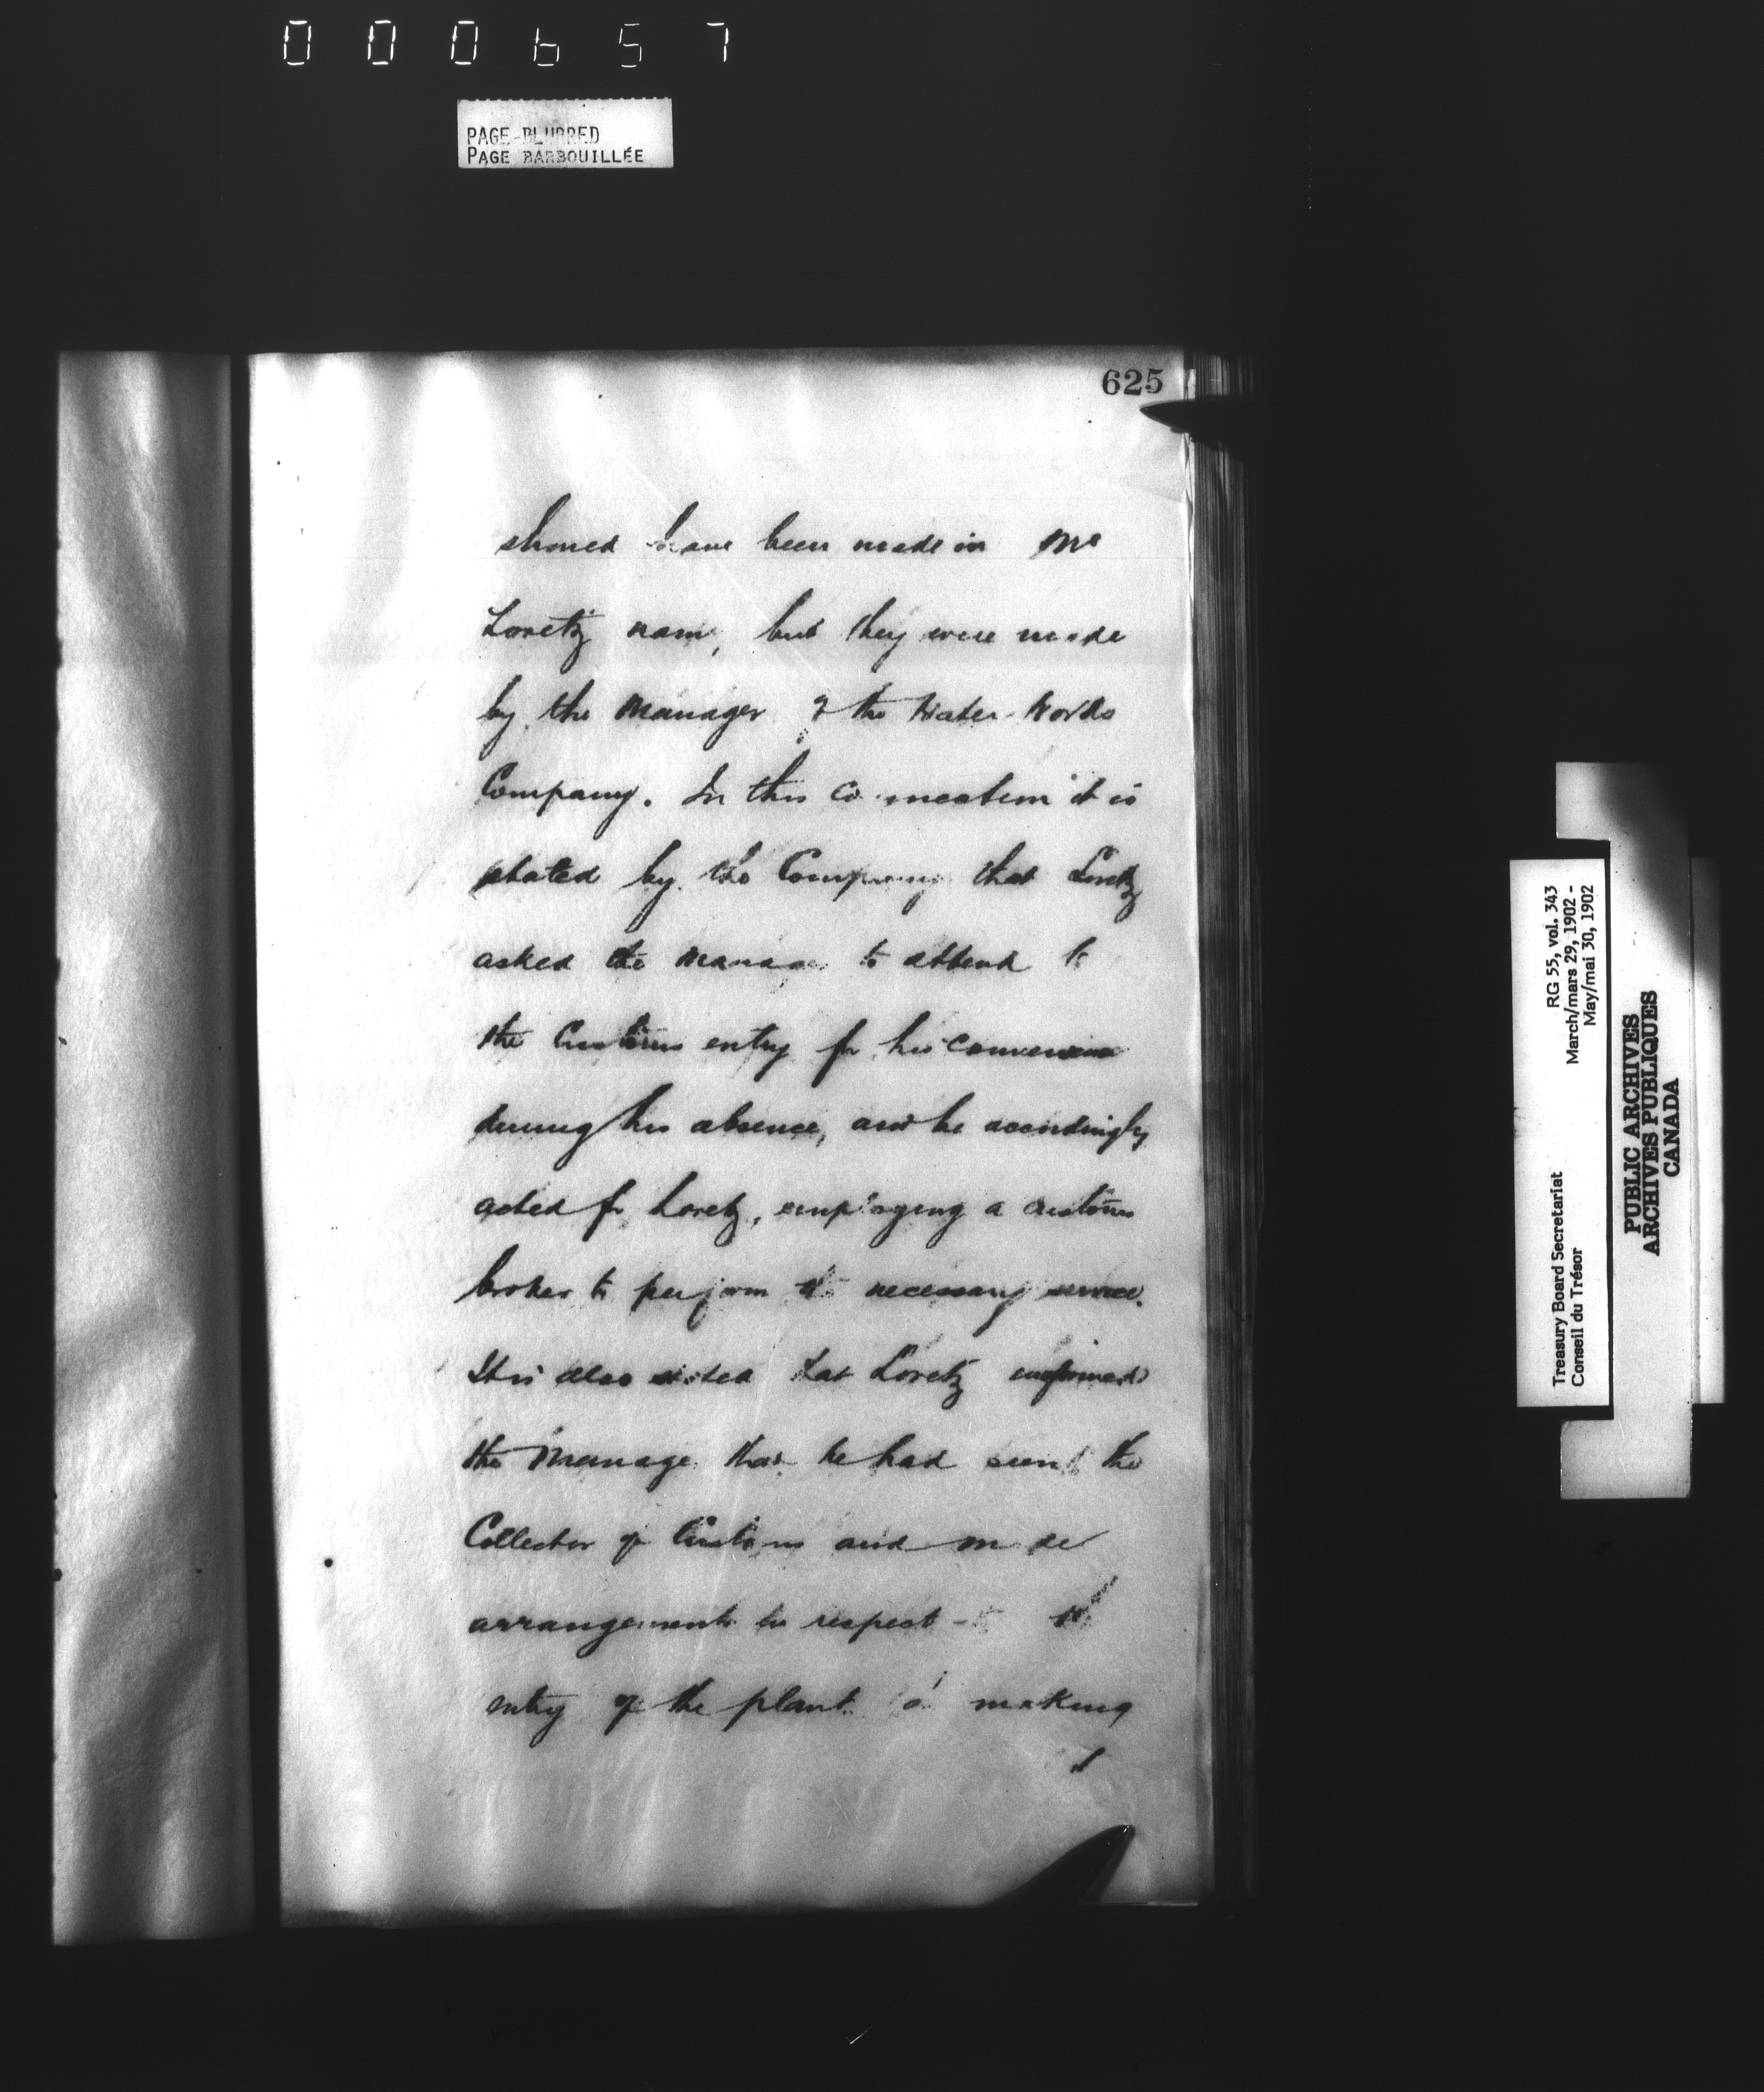 000657
PAGE BLURRED
PAGE BARBOUILLÉE
625
should have been made in Mr
Loretz name, but they were made
by the Manager of the Water-Works
Company. In this connection it is
stated by the Company that Loretz
asked the manager to attend to
the Customs entry for his convenience
during his absence, and he accordingly
acted for Loretz, employing a customs
broker to perform the necessary service.
It is also stated that Loretz informed
the Manager that he had seen the
Collector of Customs and made
arrangements in respect to the
entry of the plant making
RG 55, vol. 343
March/mars 29, 1902 -
May/mai 30, 1902
Treasury Board Secretariat
Conseil du Trésor
PUBLIC ARCHIVES
ARCHIVES PUBLIQUES
CANADA